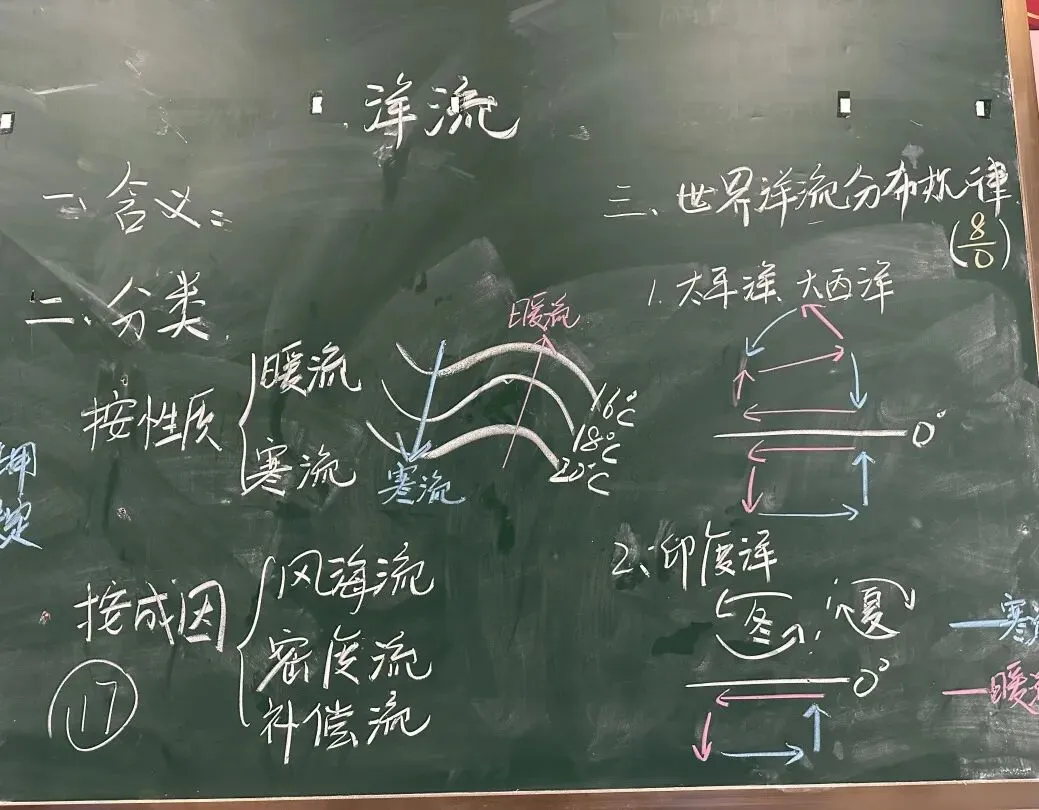 洋流
一、含义:
二、分类
按性质
暖流
寒流
暖流
寒流
16℃
18℃
22℃
按成因
风海流
密度流
补偿流
117
三、世界洋流分布规律
(8/0)
1.太平洋、大西洋
0°
2、印度洋
冬, 夏
0°
寒
暖
定